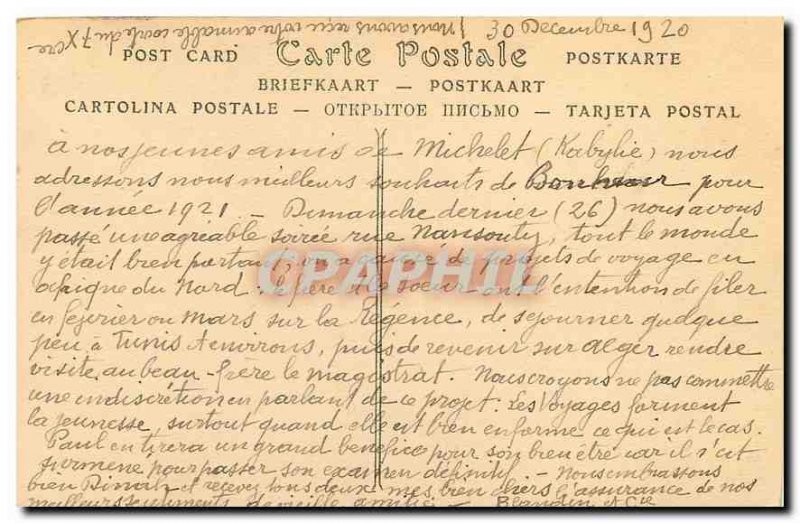 30 Decembre 1920
Nous avons reçu votre aimable carte du 7 Xbre
POST CARD Carte Postale POSTKARTE
BRIEFKAART — POSTKAART
CARTOLINA POSTALE — ОТКРЫТОЕ ПИСЬМО — TARJETA POSTAL
à nos jeunes amis de Michelet (Kabylie) nous
adressons nous meilleurs souhaits de Bonheur pour
l'année 1921 — Dimanche dernier (26) nous avons
passé une agréable soirée rue Nansouty, tout le monde
y était bien portant, on a causé de projets de voyage en
afrique du Nord. le père et la soeur ont l'intention de filer
en fevrier ou mars sur la Régence, de sejourner quelque
peu à Tunis et environs, puis de revenir sur alger rendre
visite au beau-frère le magistrat. Nous croyons ne pas commettre
une indiscrétion en parlant de ce projet. Les Voyages forment
la jeunesse, surtout quand elle est bien en forme ce qui est le cas.
Paul en tirera un grand benefice pour son bien être car il s'est
surmené pour passer son examen définitif. — Nous embrassons
bien et recevez tous deux mes bien chers l'assurance de nos
meilleurs sentiments de vieille amitié —
CPAPHIL